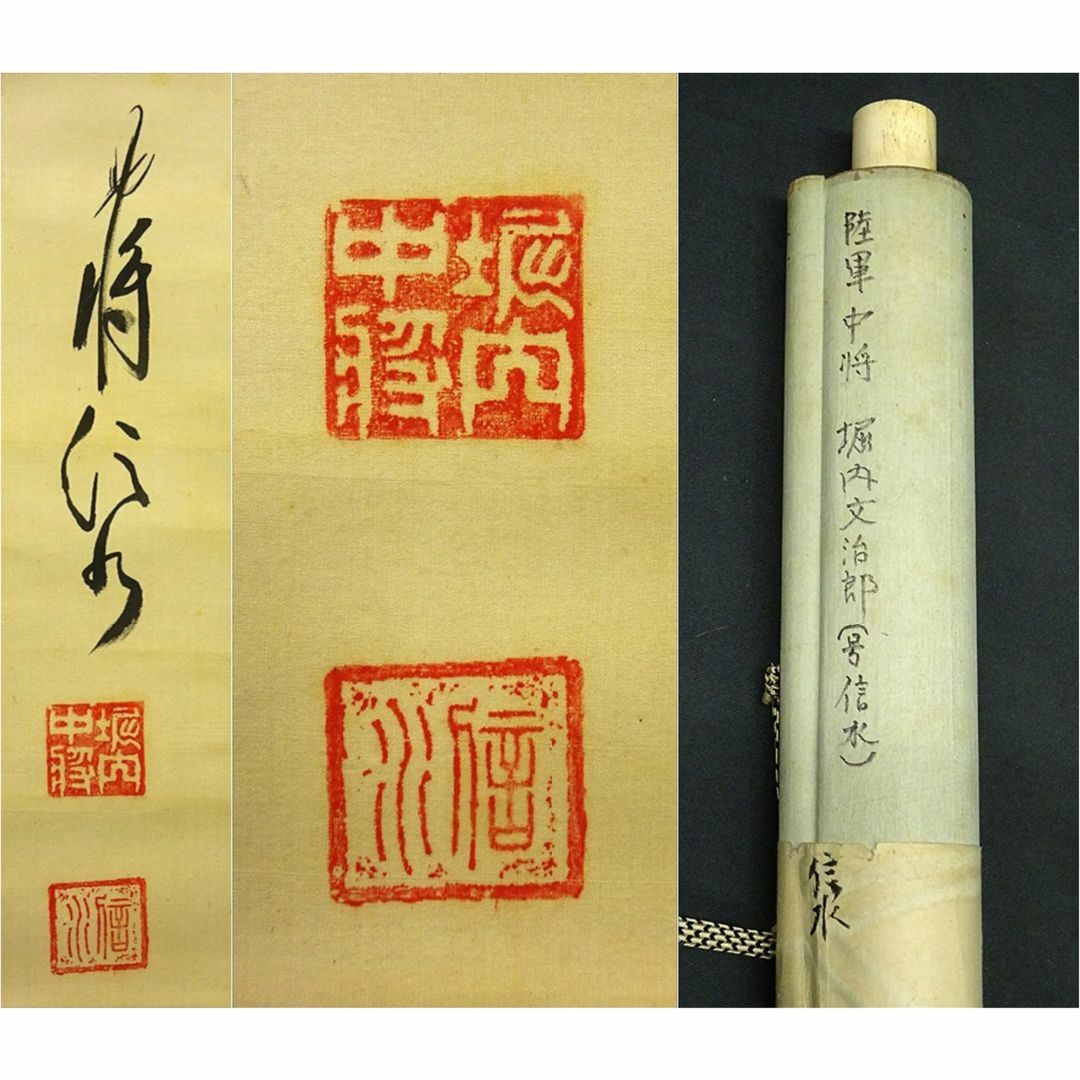 中将信水
堀内
中将
信水
堀内
中将
信水
陸軍中将 堀内文治郎(号信水)
信水